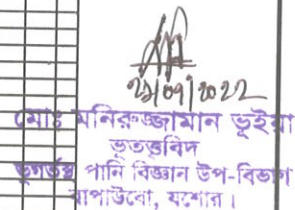 ২১/০৭/২০২২
মোঃ মনিরুজ্জামান ভূইয়া
ভূতত্ত্ববিদ
ভূগর্ভস্থ পানি বিজ্ঞান উপ-বিভাগ
বাপাউবো, যশোর।